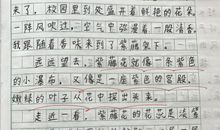 来了，校园里到处盛开着鲜艳的花朵。
一阵风吹过，空气中弥漫着一股清香，
我跟随着香味来到了紫藤架下。
远远望去，紫藤花就像一条紫色
的小瀑布，又像是一座紫色的宫殿。
嫩绿的叶子从花中探出头来。
走近一看，紫藤花的花总是淡